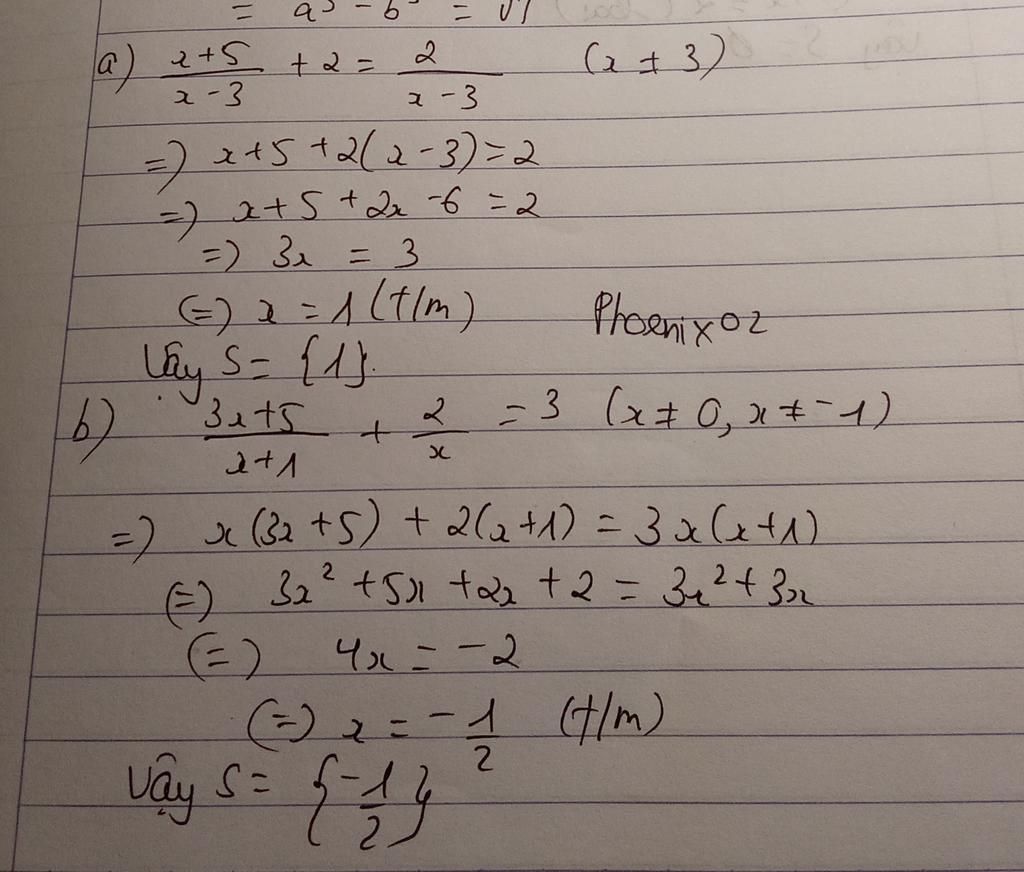 = a³ - b³ =
a) \frac{x+5}{x-3} + 2 = \frac{2}{x-3} (x ≠ 3)
=) x+5 +2(x-3)=2
=) x+5+2x-6=2
=) 3x = 3
(=) x = 1 (t/m)
Phoenix02
Vậy S= {1}.
b) \frac{3x+5}{x+1} + \frac{2}{x} = 3 (x≠0, x≠-1)
=) x(3x+5) + 2(x+1) = 3x(x+1)
(=) 3x² +5x +2x +2 = 3x²+3x
(=) 4x = -2
(=) x = -\frac{1}{2} (t/m)
Vậy S= {-\frac{1}{2}}